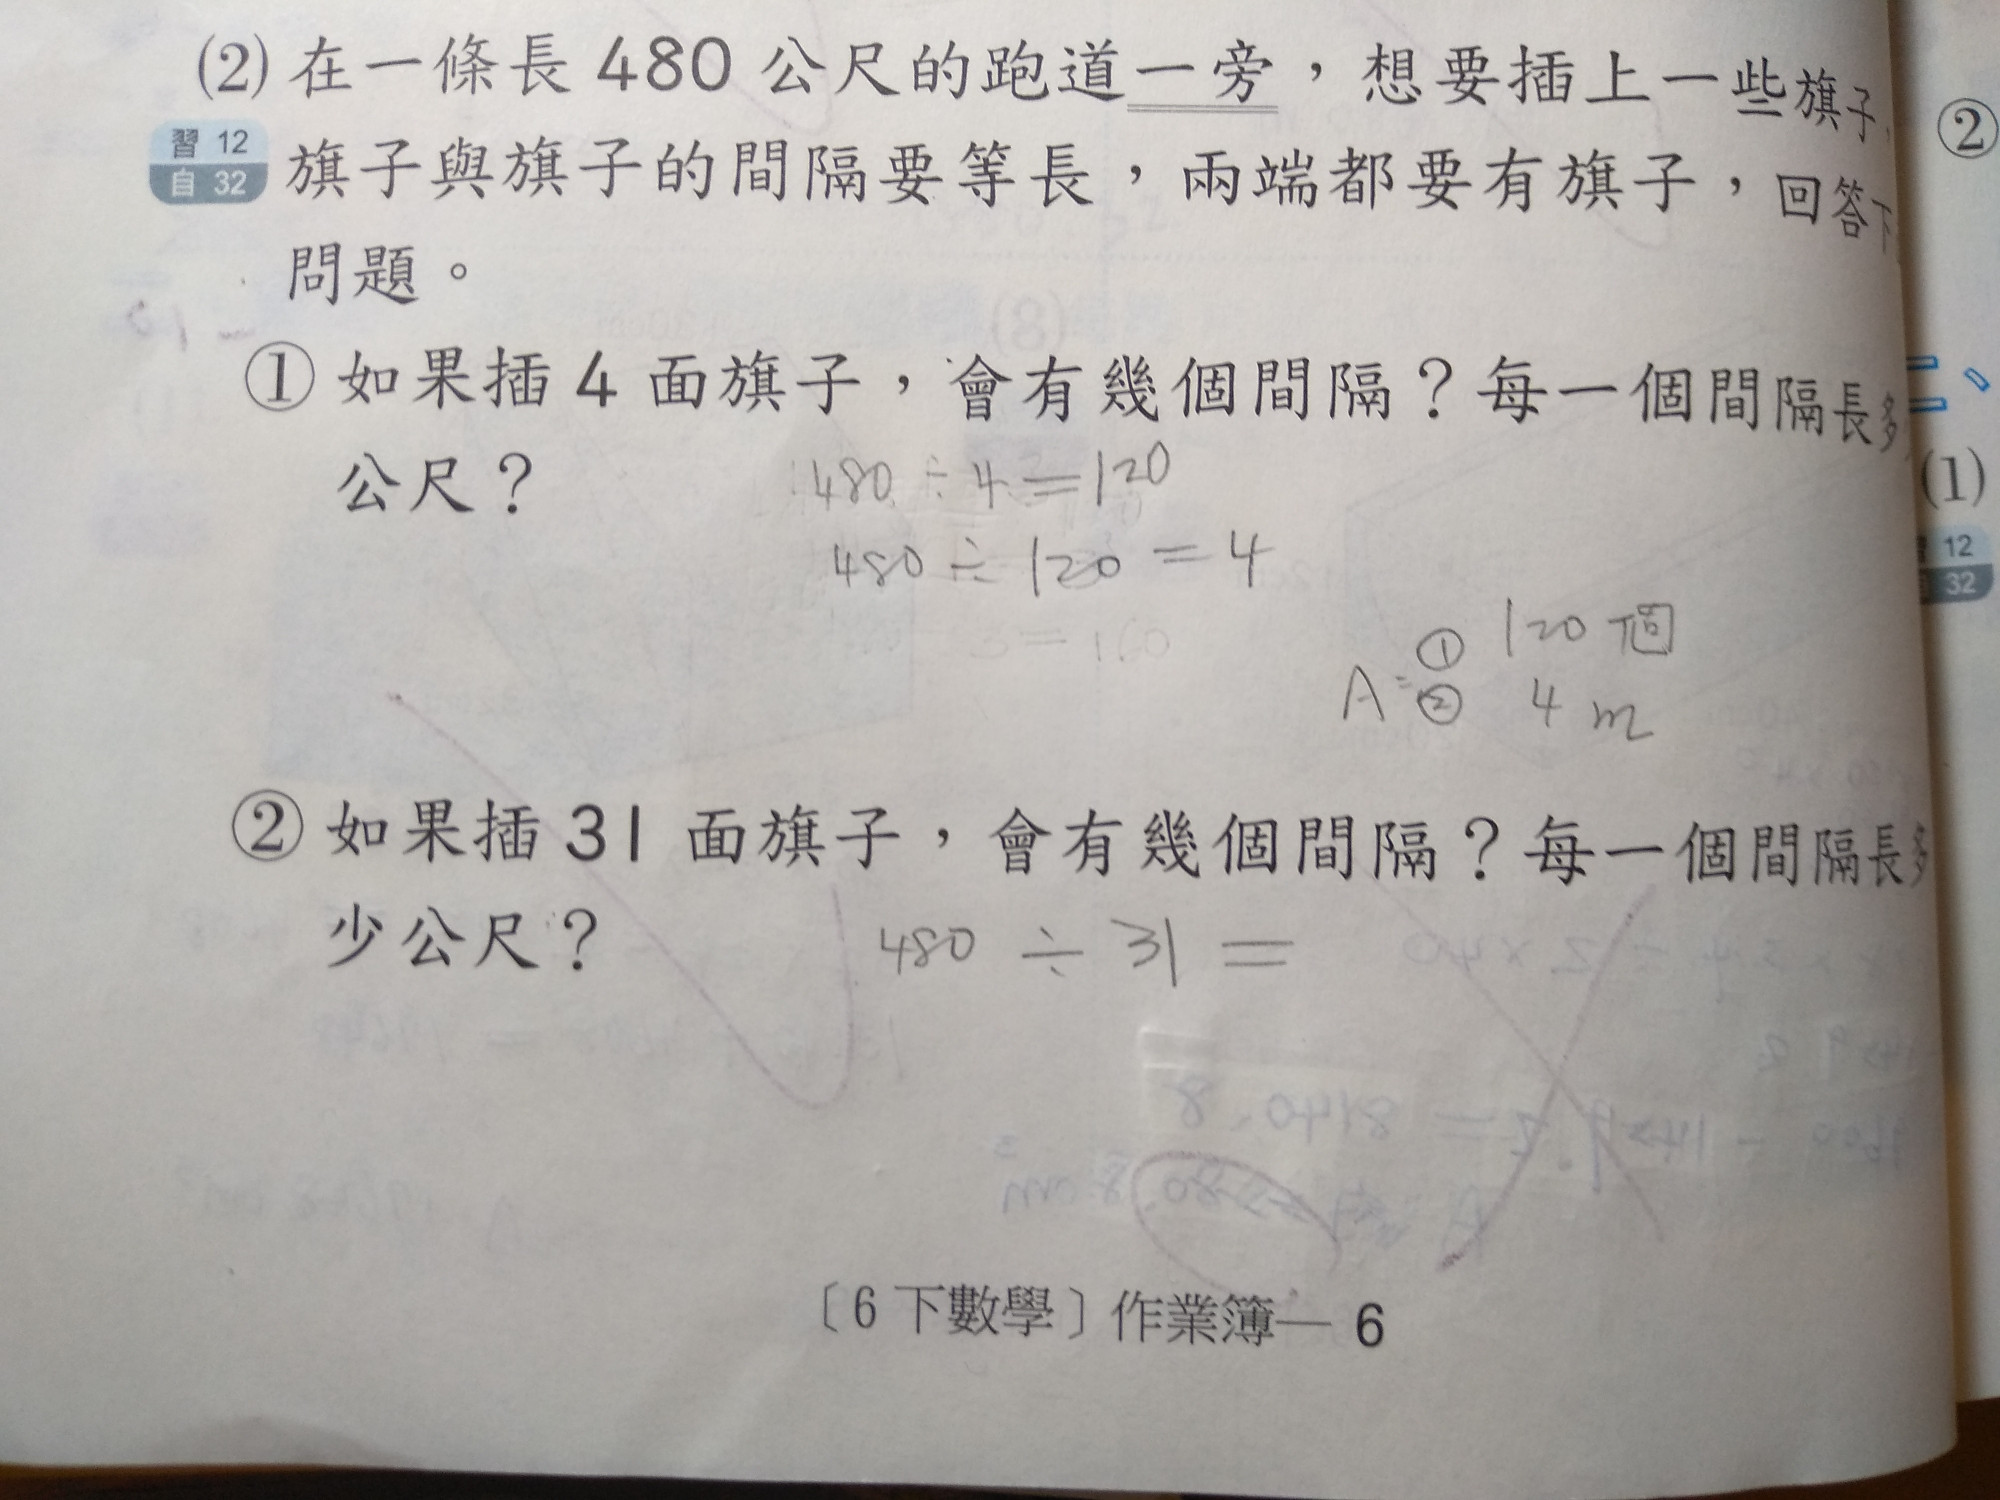 (2) 在一條長 480 公尺的跑道一旁，想要插上一些旗子，
習 12
自 32
旗子與旗子的間隔要等長，兩端都要有旗子，回答下
問題。
① 如果插 4 面旗子，會有幾個間隔？每一個間隔長多
公尺？
480 ÷ 4 = 120
480 ÷ 120 = 4
A = ① 120 個
② 4 m
② 如果插 31 面旗子，會有幾個間隔？每一個間隔長多
少公尺？
480 ÷ 31 =
〔6下數學〕作業簿— 6
②
(1)
12
32